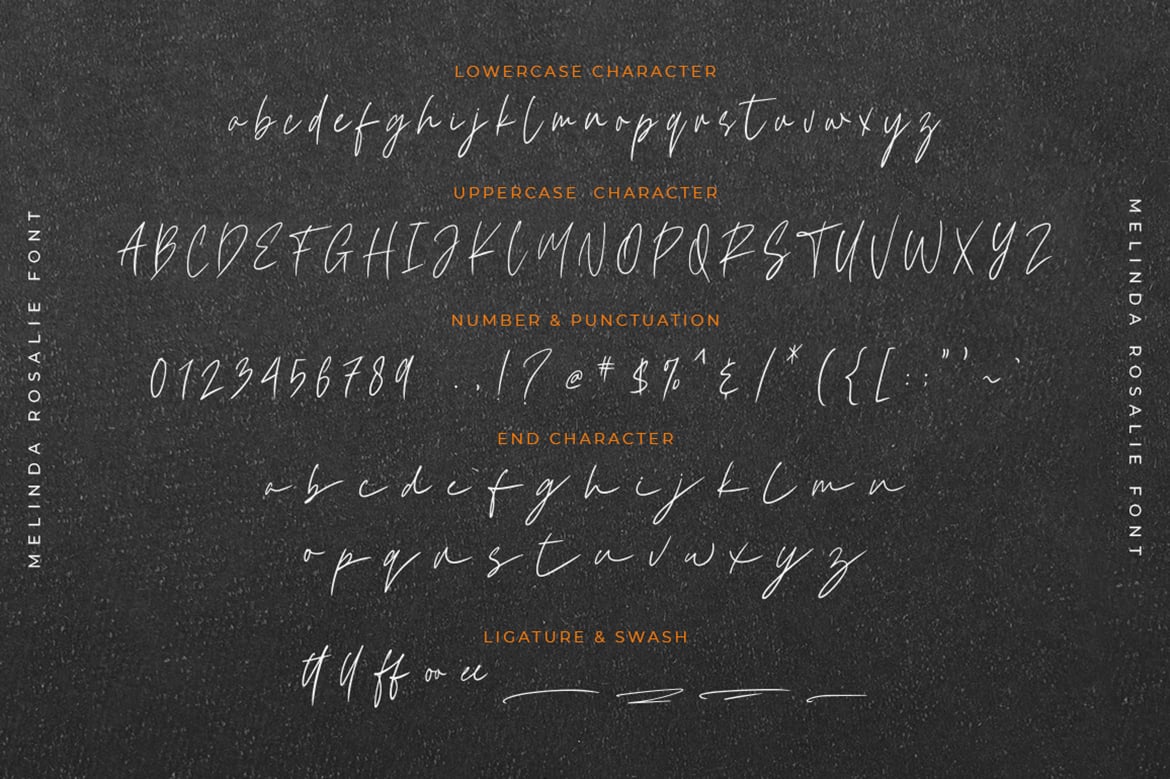 LOWERCASE CHARACTER
abcdefghijklmnopqrstuvwxyz
UPPERCASE CHARACTER
ABCDEFGHIJKLMNOPQRSTUVWXYZ
NUMBER & PUNCTUATION
0123456789 .,!?@#$%^&/*({[:;"'~`
END CHARACTER
abcdefghijklmn
opqrstuvwxyz
LIGATURE & SWASH
tt ll ff oo ee
MELINDA ROSALIE FONT
MELINDA ROSALIE FONT